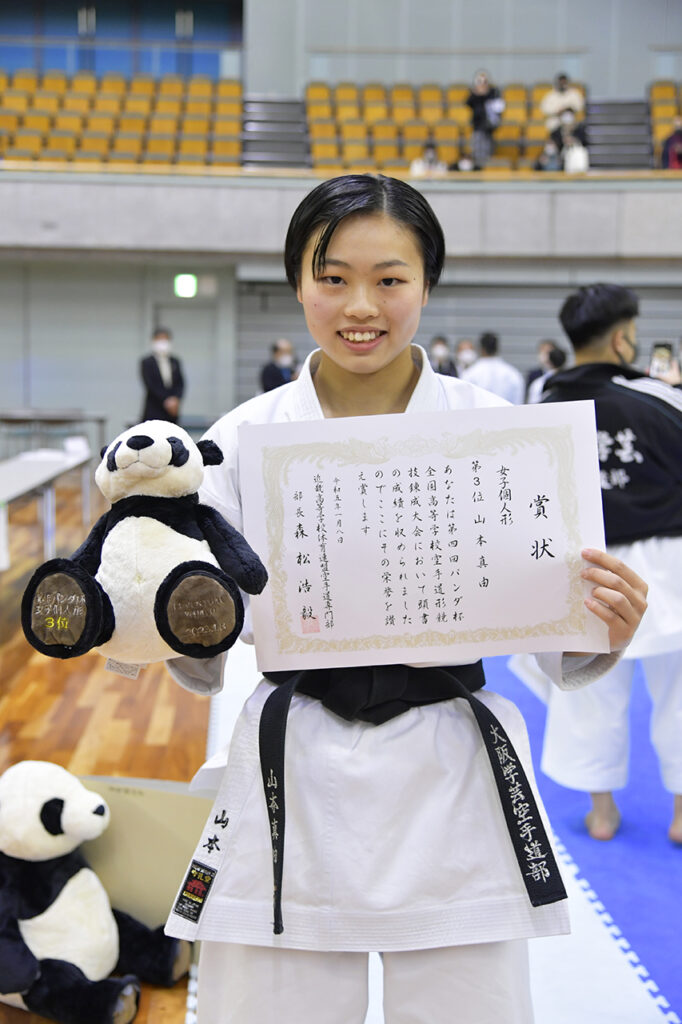 賞状
女子個人形
第3位 山本真由
あなたは第四回パンダ杯
全国高等学校空手道形競
技錬成大会において頭書
の成績を収められました
のでここにその栄誉を讃
え賞します
令和五年一月八日
近畿高等学校体育連盟空手道専門部
部長 森松浩毅
女子個人形
3位
2023.1.8
山本真由
大阪学芸空手道部
山本
学芸